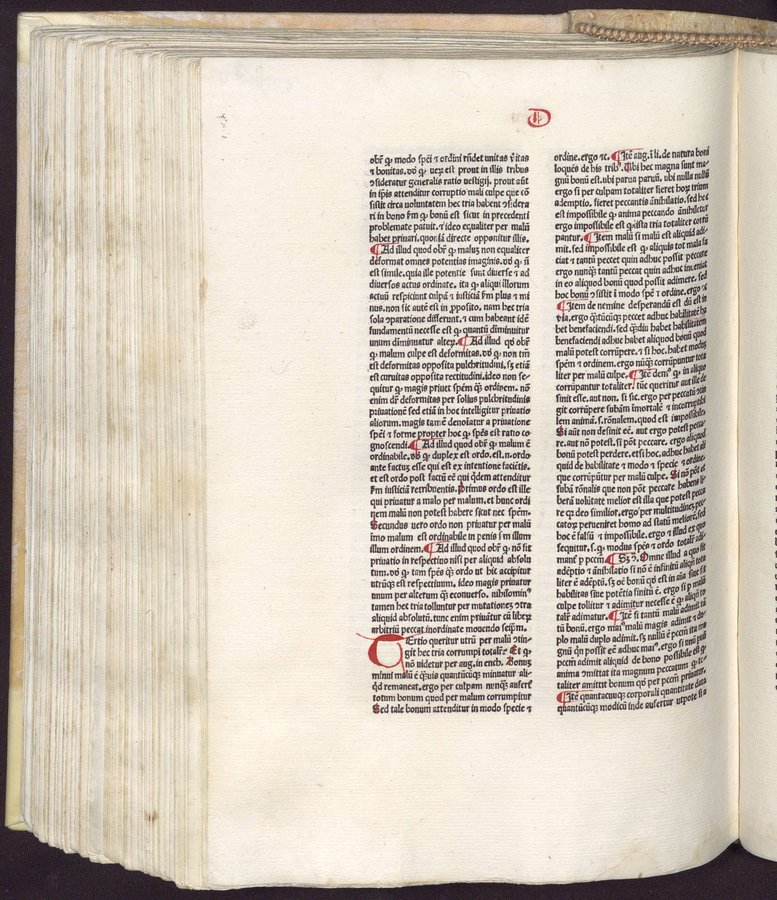 D
obr̄ ꝙ modo sp̄ei ⁊ ordini rn̄det unitas v̄itas
⁊ bonitas. dō ꝙ veꝝ est prout in illis tribus
ↄsideratur generalis ratio vestigij. prout aūt
in ip̄is attenditur corruptio mali culpe que cō
sistit circa voluntatem hec tria habent ↄsidera
ri in bono fm̄ ꝙ bonū est sicut in precedenti
problemate patuit. ⁊ ideo equaliter per malū
habet priuari. quoꝝ directe opponitur illis.
¶ Ad illud quod obr̄ ꝙ maluꝫ non equaliter
deformat omnes potentias imaginis. dō ꝙ n̄
est simile. quia ille potentie sunt diuerse ⁊ ad
diuersos actus ordinate. ita ꝙ aliqui illorum
actuū respiciunt culpā ⁊ iusticiā fm̄ plus ⁊ mi
nus. non sic autē est in ꝓposito. nam hec tria
sola ↄparatione differunt. ⁊ cum habeant idē
fundamentū necesse est ꝙ quantū diminuitur
unum diminuatur alteꝝ. ¶ Ad illud qd̄ obr̄
ꝙ malum culpe est deformitas. dō ꝙ non tm̄
est deformitas opposita pulchritudini. sꝫ etiā
est curuitas opposita rectitudini. ideo non se-
quitur ꝙ magis priuet spēm qͣꝫ ordinem. nō
enim dr̄ deformitas per solius pulchritudinis
priuationē sed etiā in hoc intelligitur priuatio
aliorum. magis tamē denoātur a priuatione
sp̄ei ⁊ forme propter hoc ꝙ spēs est ratio co
gnoscendi. ¶ Ad illud quod obr̄ ꝙ malum ē
ordinabile. dō ꝙ duplex est ordo. est. n. ordo
ante factuꝫ esse qui est ex intentione faciētis.
et est ordo post factū eē qui qͥdem attenditur
fm̄ iusticiā retribuentis. Primus ordo est ille
qui priuatur a malo per malum. et hunc ordi
nem malū non potest habere sicut nec spēm.
Secundus uero ordo non priuatur per malū
imo malum est ordinabile in penis fm̄ illum
illum ordinem. ¶ Ad illud quod obr̄ ꝙ nō fit
priuatio in respectiuo nisi per aliquid absolu
tum. dō ꝙ tam spēs qͣꝫ ordo ut hic accipitur
utrūqꝫ est respectiuum. ideo magis priuatur
unum per alterum qͣꝫ econuerso. nihilominꝰ
tamen hec tria tolluntur per mutationeꝫ ↄtra
aliquid absolutū. tunc enim priuātur cū liberꝫ
arbitriū peccat inordinate mouendo seip̄m.
TErtio queritur utrū per malū ↄtin-
git hec tria corrumpi totalr̄. Et ꝙ
nō uidetur per aug. in ench. Bonuꝫ
minui malū ē qͣꝫuis quantūcūqꝫ minuatur ali-
qd̄ remaneat. ergo per culpam nunqͣꝫ aufertꝭ
totum bonum quod per malum corrumpitur
Sed tale bonum attenditur in modo specie ⁊
ordine. ergo ⁊c. ¶ Itē aug. ī li. de natura boni
loquēs de his tribꝰ. Ubi hec magna sunt ma-
gnū bonū est. ubi parua paruū. ubi nulla nullū
ergo si per culpam totaliter fieret hoꝝ trium
ademptio. fieret peccantis ānihilatio. sed hec
est impossibile ꝙ anima peccando ānihiletur
ergo impossibile est ꝙ ista tria totaliter corrū
pantur. ¶ Item malū si malū est aliquid adi-
mit. sed impossibile est ꝙ aliquis tot mala fa
ciat ⁊ tantū peccet quin adhuc possit peccare
ergo nunqͣꝫ tantū peccat quin adhuc inueniat
in eo aliquod bonū quod possit adimere. sed
hoc bonū ↄsistit ī modo spē ⁊ ordine. ergo ⁊c
¶ Item de nemine desperandū est dū est in
via. ergo qͣꝫtūcūqꝫ peccet adhuc habilitatē ha
bet benefaciendi. sed qͣꝫdiu habet habilitatem
benefaciendi adhuc habet aliquod bonū quod
malū potest corrūpere. ⁊ si hoc. habet modum
spēm ⁊ ordinem. ergo nūqͣꝫ corrūpuntur tota
liter per malū culpe. ¶ Itē demꝰ ꝙ in aliquo
corrūpantur totaliter. tūc queritur aut ille de
sinit esse. aut non. si sic. ergo per peccatū ↄtin
git corrūpere subām imortalē ⁊ incorruptibi
lem animā. s. rōnalem. quod est impossibile.
Si aūt non desinit eē. aut ergo potest pecca
re. aut nō potest. si pōt peccare. ergo aliquod
bonū potest perdere. etsi hoc. adhuc habet ali
quid de habilitate ⁊ modo ⁊ specie ⁊ ordine
que corrūpūtur per malū culpe. Si nō pōt et
subā rōnalis que non pōt peccare habens li
berā uoluntatē melior est illa que potest pecca
re qꝫ deo similior. ergo per multitudineꝫ pec
catoꝝ perueniret homo ad statū meliorē. sed
hoc ē falsū ⁊ impossibile. ergo ⁊ illud ex quo
sequitur. s. ꝙ modus spēs ⁊ ordo totalr̄ adi-
mant᷑ p̲ pccm̄. ¶ Sꝫ ↄ. Omne illud a quo fit
adēptio ⁊ ānihilatio si nō ē infinitū aliqͥ tota
liter ē adēptū. sꝫ oē bonū qd̄ est in aīa siue sit
habilitas siue potētia finitū ē. ergo si p̲ malū
culpe tollitur ⁊ adimitur necesse ē ꝙ aliqn̄ to
talr̄ adimatur. ¶ Itē si tantū malū adimit tā
tū bonū. ergo maiꝰ malū magis adimit ⁊ du-
plo malū duplo adimit. sꝫ nullū ē pccm̄ ita ma
gnū qn̄ possit eē adhuc maiꝰ. ergo si unū pec
pccm̄ adimit aliquid de bono possibile est ꝙ
anima ↄmittat ita magnum peccatum ꝙ to-
taliter amittet bonum qd̄ per pccm̄ priuatur.
¶ Itē quantacūqꝫ corporali quantitate data
quantūcūqꝫ modicū inde aufertur utpote si a